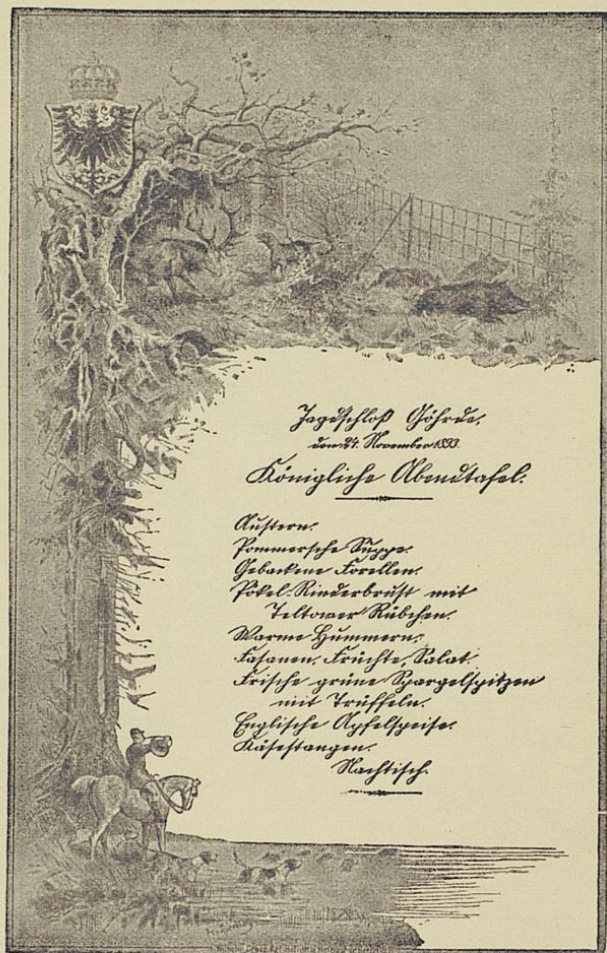 Jagdschloß Göhrde.
den 24. November 1893.
Königliche Abendtafel.
Austern.
Pommersche Suppe.
Gebackene Forellen.
Pökel-Rinderbrust mit
Teltower Rübchen.
Warme Hummern.
Fasanen, Früchte, Salat.
Frische grüne Spargelspitzen
mit Trüffeln.
Englische Apfelspeise.
Käsestangen.
Nachtisch.